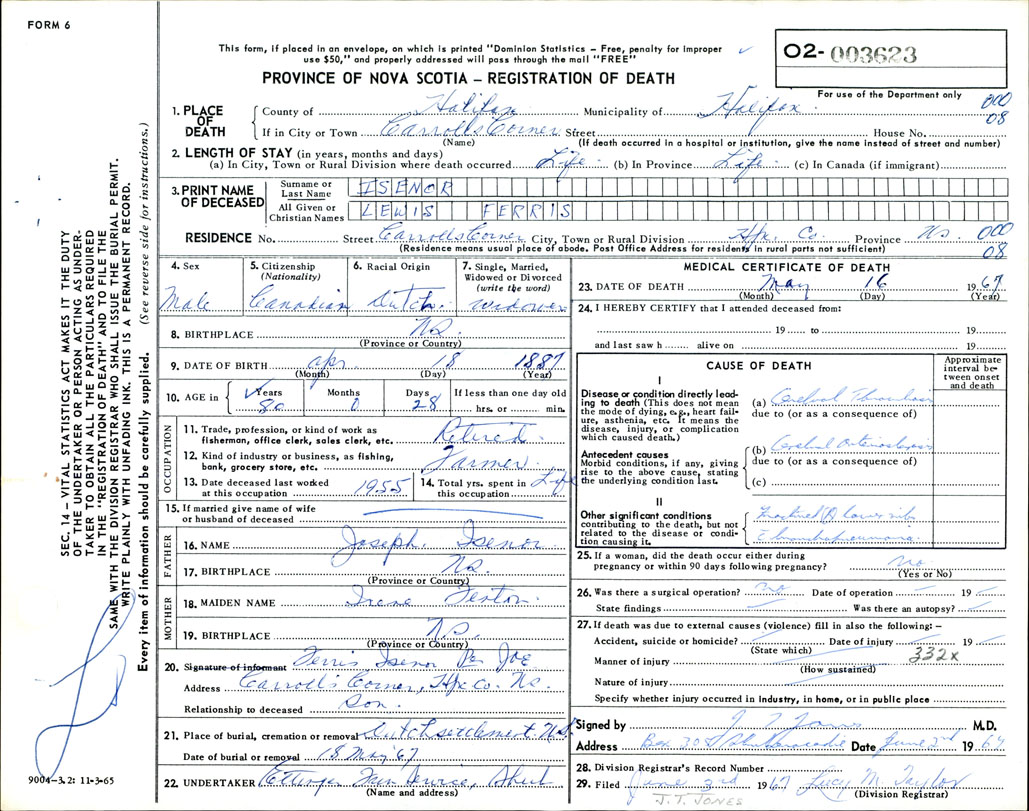 FORM 6
This form, if placed in an envelope, on which is printed "Dominion Statistics – Free, penalty for improper
use $50," and properly addressed will pass through the mail "FREE"
O2- 003623
PROVINCE OF NOVA SCOTIA – REGISTRATION OF DEATH
For use of the Department only
000
08
1. PLACE OF DEATH
County of Halifax Municipality of Halifax
If in City or Town Carrolls Corner Street House No.
(Name) (If death occurred in a hospital or institution, give the name instead of street and number)
2. LENGTH OF STAY (in years, months and days)
(a) In City, Town or Rural Division where death occurred Life (b) In Province Life (c) In Canada (if immigrant)
3. PRINT NAME OF DECEASED
Surname or Last Name ISENOR
All Given or Christian Names LEWIS FERRIS
RESIDENCE No. Street Carrolls Corner City, Town or Rural Division Hfx. Co. Province N.S. 000
(Residence means usual place of abode. Post Office Address for residents in rural parts not sufficient) 08
4. Sex Male
5. Citizenship (Nationality) Canadian
6. Racial Origin Dutch
7. Single, Married, Widowed or Divorced (write the word) widower
8. BIRTHPLACE N.S.
(Province or Country)
9. DATE OF BIRTH apr 18 1887
(Month) (Day) (Year)
10. AGE in Years 80 Months 0 Days 28 If less than one day old hrs. or min.
OCCUPATION
11. Trade, profession, or kind of work as fisherman, office clerk, sales clerk, etc. Retired
12. Kind of industry or business, as fishing, bank, grocery store, etc. Farmer
13. Date deceased last worked at this occupation 1955
14. Total yrs. spent in this occupation Life
15. If married give name of wife or husband of deceased
FATHER
16. NAME Joseph Isenor
17. BIRTHPLACE N.S.
(Province or Country)
MOTHER
18. MAIDEN NAME Irene
19. BIRTHPLACE N.S.
(Province or Country)
20. Signature of informant Ferris Isenor Per JOE
Address Carroll's Corner, Hfx Co. N.S.
Relationship to deceased Son.
21. Place of burial, cremation or removal Dutch settlement N.S.
Date of burial or removal 18 May '67
22. UNDERTAKER Ettinger Fun Service, Shub
(Name and address)
MEDICAL CERTIFICATE OF DEATH
23. DATE OF DEATH May 16 1967
(Month) (Day) (Year)
24. I HEREBY CERTIFY that I attended deceased from:
19 to 19
and last saw h alive on 19
CAUSE OF DEATH
Approximate interval between onset and death
I
Disease or condition directly leading to death (This does not mean the mode of dying, e.g., heart failure, asthenia, etc. It means the disease, injury, or complication which caused death.)
(a) Cerebral Thrombosis
due to (or as a consequence of)
Antecedent causes
Morbid conditions, if any, giving rise to the above cause, stating the underlying condition last.
(b) Cerebral Arteriosclerosis
due to (or as a consequence of)
(c)
II
Other significant conditions contributing to the death, but not related to the disease or condition causing it.
Fractured lower rib
bronchopneumonia
25. If a woman, did the death occur either during pregnancy or within 90 days following pregnancy? no
(Yes or No)
26. Was there a surgical operation? no Date of operation 19
State findings Was there an autopsy?
27. If death was due to external causes (violence) fill in also the following: –
Accident, suicide or homicide? Date of injury 19
(State which) 332x
Manner of injury
(How sustained)
Nature of injury
Specify whether injury occurred in industry, in home, or in public place
Signed by J T Jones M.D.
Address Box 305 Shubenacadie Date June 2nd 1967
28. Division Registrar's Record Number
29. Filed June 3rd 1967 Lucy M. Taylor
(Division Registrar)
J.T. JONES
SEC. 14 – VITAL STATISTICS ACT MAKES IT THE DUTY
OF THE UNDERTAKER OR PERSON ACTING AS UNDER-
TAKER TO OBTAIN ALL THE PARTICULARS REQUIRED
IN THE "REGISTRATION OF DEATH" AND TO FILE THE
SAME WITH THE DIVISION REGISTRAR WHO SHALL ISSUE THE BURIAL PERMIT.
WRITE PLAINLY WITH UNFADING INK. THIS IS A PERMANENT RECORD.
Every item of information should be carefully supplied. (See reverse side for instructions.)
9004-3.2: 11-3-65